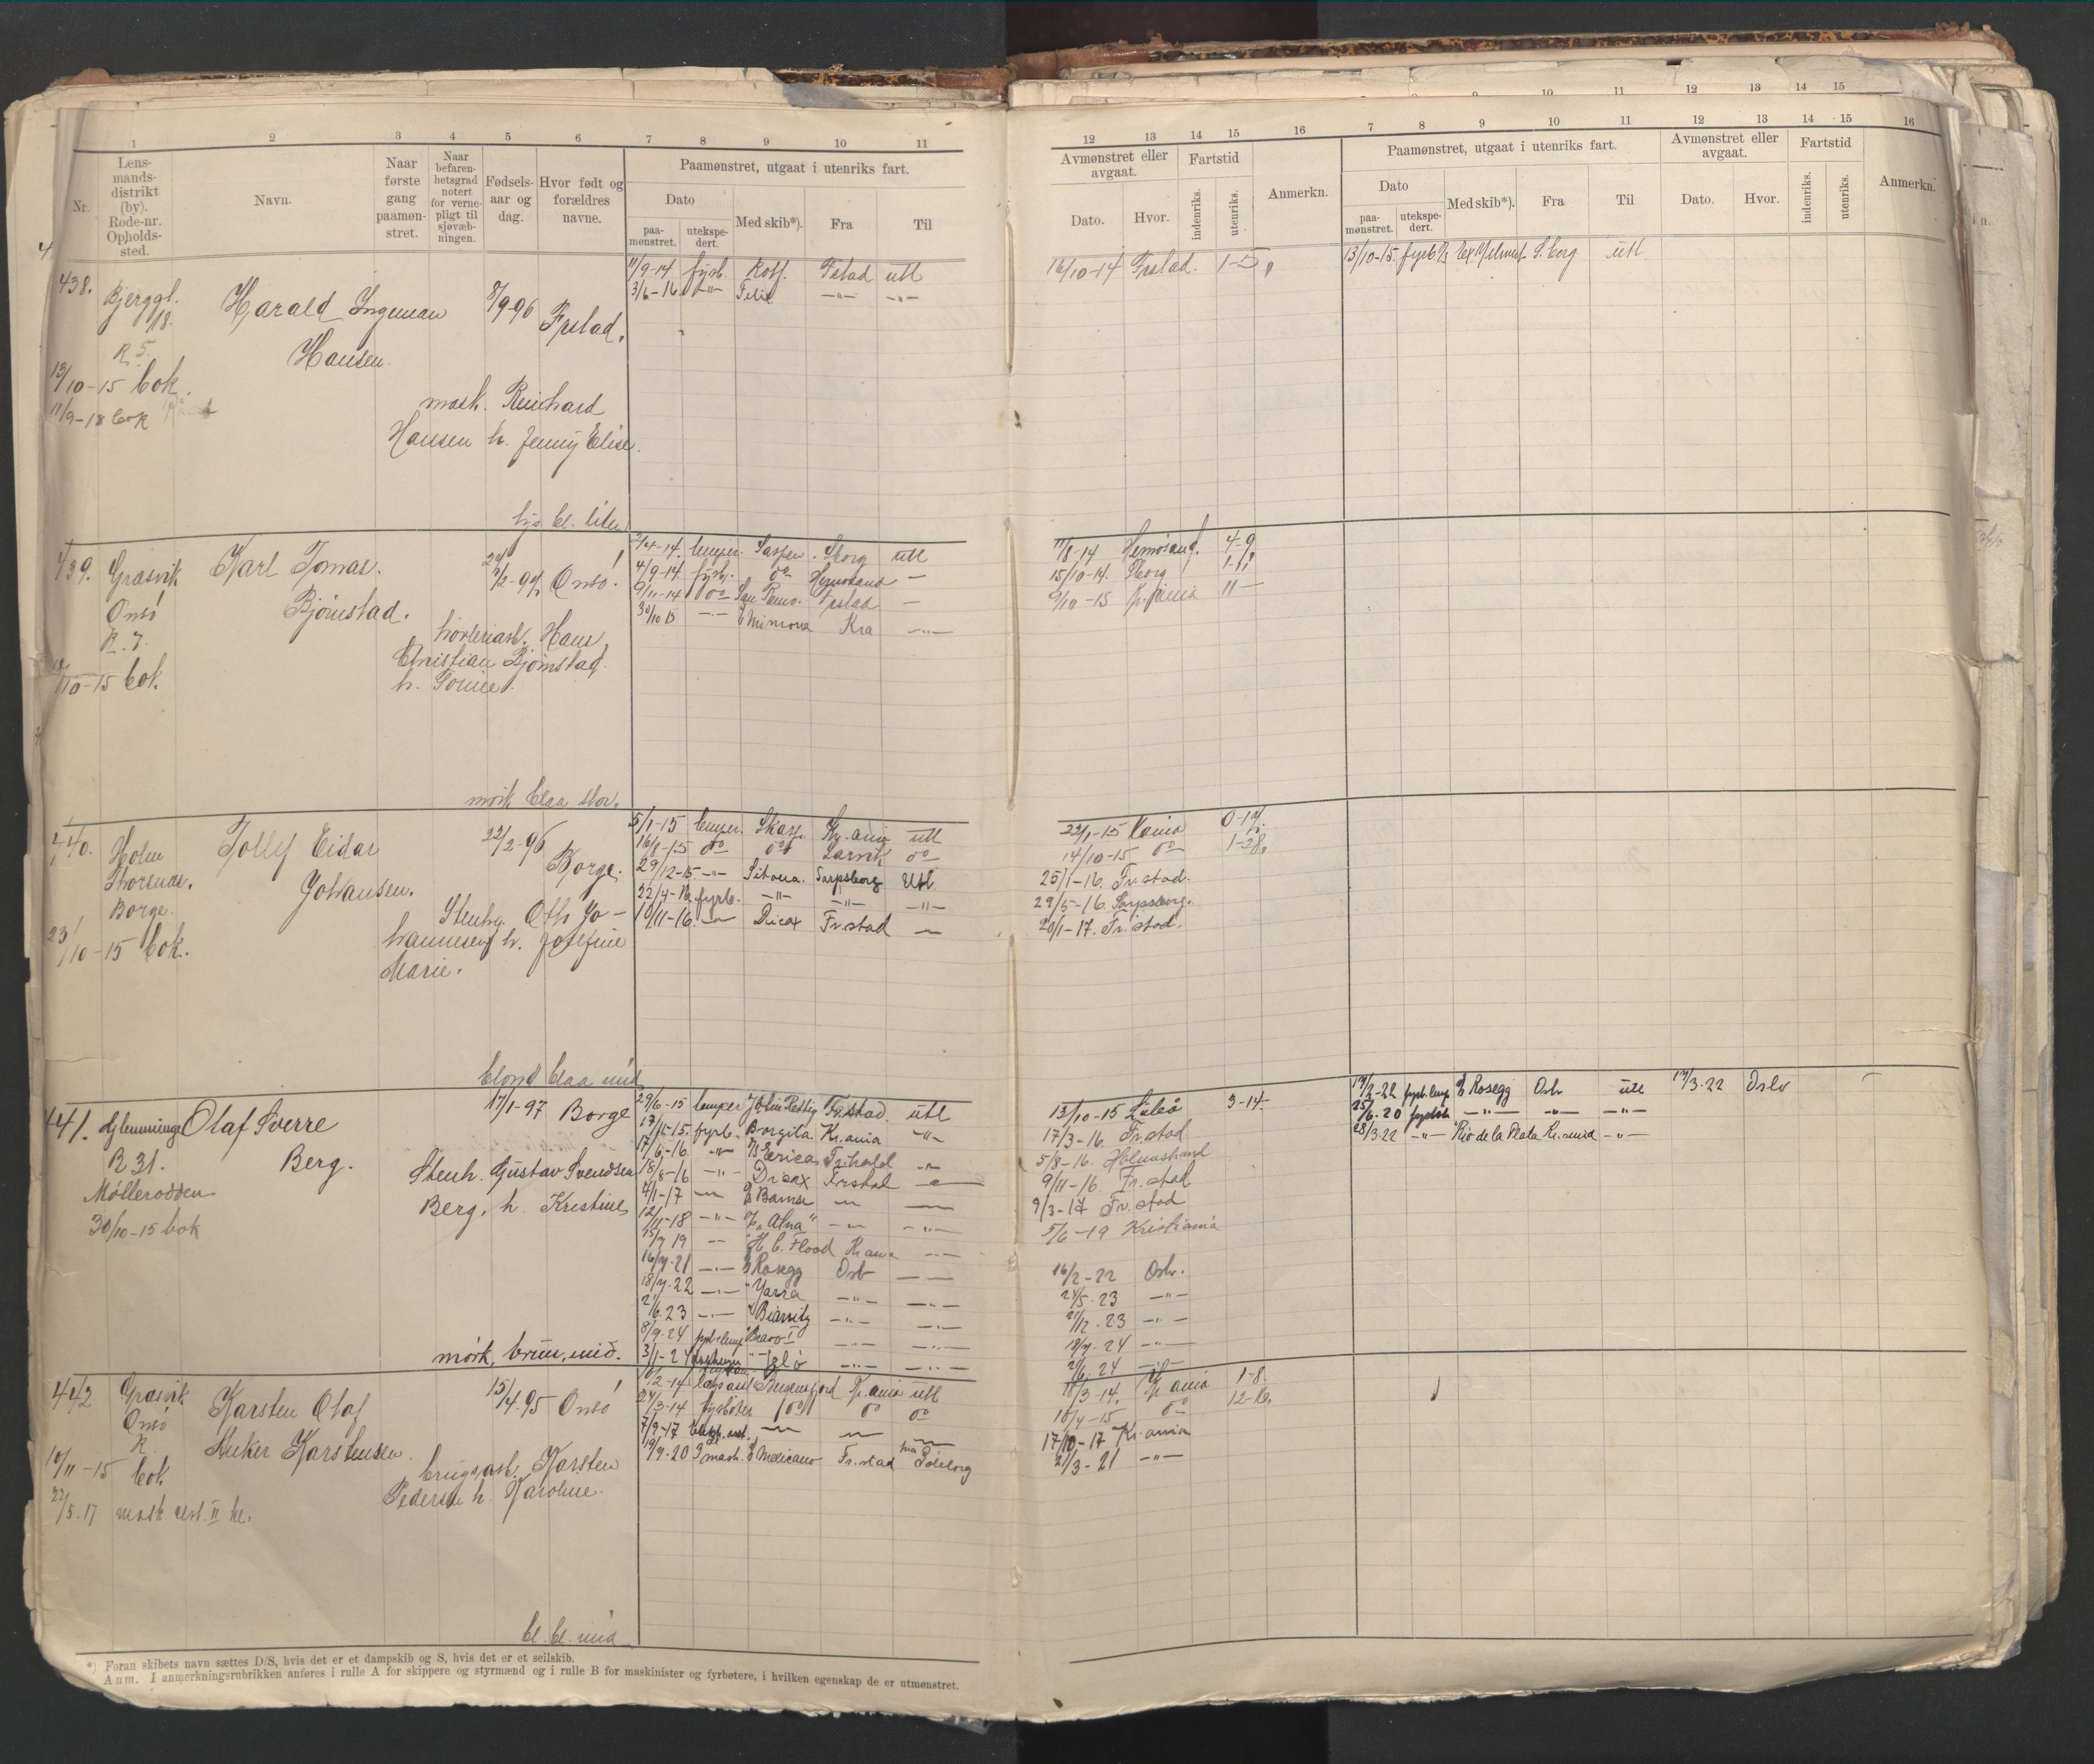 1 2 3 4 5 6 7 8 9 10 11
Nr.
Lens-
mands-
distrikt
(by).
Rode-nr.
Opholds-
sted.
Navn.
Naar
første
gang
paamøn-
stret.
Naar
befaren-
hetsgrad
notert
for verne-
pligt til
sjøvæb-
ningen.
Fødsels-
aar og
dag.
Hvor født og
forældres
navne.
Paamønstret, utgaat i utenriks fart.
Dato
paa-
mønstret.
utekspe-
dert.
Med skib*).
Fra
Til
438.
Bjerggt.
18.
R 5.
13/10-15 bok.
11/9-18 bok
Harald Ingeman
Hansen.
8/9-96
Frstad.
mask. Reinhard
Hansen h. Jenny Elise.
lys bl. liten
11/9-14 fyrb. Rolf. Fstad utl
3/6-16 -"- Felix -"- -"-
439. Græsvik
Onsö
R. 7.
10-15 bok.
Karl Tomas.
Björnstad.
2-94 Onsö.
Hans
Christian Björnstad.
mörk blaa stor.
2/4-14. lemper. Sborg utl
4/9-14 fyrb. do Hernösand —
9/11-14 do Frstad —
30/10 15 -"- Minerva Kra -"-
440. Holm
Storsnæs.
Borge.
23/10-15 bok.
Tolly Eidar
Johansen.
22/2-96
Borge.
Stenhg. Oth Jo-
hannesen h. Josefine
Marie.
blond blaa mid
5/1-15 lemper. Kr.ania utl
16/8-15 do do Larvik do
29/12-15 -"- Sitona. Sarpsborg Utl.
22/4-16. fyrb. -"- -"- -"-
10/11-16. -"- Dicax Fr.stad —
441. Glemminge
R 31.
Møllerodden
30/10-15 bok
Olaf Sverre
Berg.
17/1-97 Borge
Stenh. Gustav Svendsen
Berg. h. Kristine
mørk, brun, mid.
29/6-15 lemper Frstad. utl
17/11-15. fyrb. Borgila Kr.ania -"-
17/6-16. -"- Erica Fr.hald -"-
18/8-16 -"- Dicax Frstad -"-
4/1-17 -"- Bamse -"- —
12/11-18 -"- "Alna" -"- -"-
25/7 19 -"- H. C. Flood Kr.ania -"-
16/7-21 -"- Rosegg Oslo —
18/7-22 -"- Yarra -"- -"-
21/6 23 -"- Biarritz -"- -"-
8/9-24 fyrb-lemp Bravo I -"- -"-
3/1-24 Jelö -"- -"-
442 Græsvik
Onsö
R.
10/11-15 bok
22/5-17 mask. cert. II kl.
Karsten Olaf
Anker Karstensen.
15/4-95 Onsö
brugsarb. Karsten
Pedersen h. Karoline.
bl. bl. mid
10/2-14 Bergensfjord Kr.ania utl
24/3-14 fyrböter do do do
7/9-17 -"- -"- -"-
19/7-20 3 mask. Mexicano Fr.stad Göteborg
*) Foran skibets navn sættes D/S, hvis det er et dampskib og S, hvis det er et seilskib.
Anm. I anmerkningsrubrikken anføres i rulle A for skippere og styrmænd og i rulle B for maskinister og fyrbøtere, i hvilken egenskap de er utmønstret.
10 11 12 13 14 15
12 13 14 15 16 7 8 9 10 11 12 13 14 15 16
Avmønstret eller
avgaat.
Dato.
Hvor.
Fartstid
indenriks.
utenriks.
Anmerkn.
Paamønstret, utgaat i utenriks fart.
Dato
paa-
mønstret.
utekspe-
dert.
Med skib*).
Fra
Til
Avmønstret eller
avgaat.
Dato.
Hvor.
Fartstid
indenriks.
utenriks.
Anmerkn.
16/10-14 Frstad. 1-5
13/10-15 fyrb. S.borg utl
11/8-14 Hernösand. 4-9
15/10-14. Sborg 1-11
9/10-15 Kr.ania 11 —
22/1-15 Kania 0-17.
14/10-15 do 1-28.
25/1-16. Fr.stad.
29/5-16. Sarpsborg.
20/1-17. Fr.stad.
13/10-15 Luleå 3-14
17/3-16. Fr.stad
5/8-16. Holmestrand
9/11-16. Fr.stad
9/3-17 Fr.stad
5/6-19 Kristiania
16/2-22 Oslo.
24/5-23 -"-
21/12-23 -"-
19/7-24 -"-
21/6 24 -"-
17/2-22 fyrb.lemp Rosegg Oslo utl 17/3-22 Oslo
25/6-20 fyrböt -"- -"- -"-
28/3 22 -"- Rio de la Plata Kr.ania -"-
18/3-14. Kr.ania 1-8.
10/4-15 do 12-16.
17/10-17 Kr.ania
21/3-21 -"-